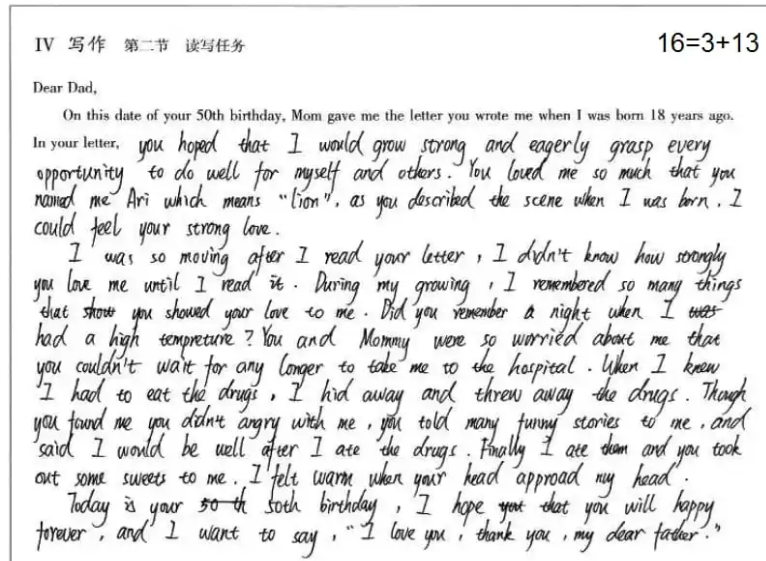 IV 写作 第二节 读写任务
16=3+13
Dear Dad,
On this date of your 50th birthday, Mom gave me the letter you wrote me when I was born 18 years ago.
In your letter, you hoped that I would grow strong and eagerly grasp every
opportunity to do well for myself and others. You loved me so much that you
named me Ari which means "lion", as you described the scene when I was born. I
could feel your strong love.
I was so moving after I read your letter, I didn't know how strongly
you love me until I read it. During my growing, I remembered so many things
that show you showed your love to me. Did you remember a night when I was
had a high tempreture? You and Mommy were so worried about me that
you couldn't wait for any longer to take me to the hospital. When I knew
I had to eat the drugs, I hid away and threw away the drugs. Though
you found me you didn't angry with me, you told many funny stories to me, and
said I would be well after I ate the drugs. Finally I ate them and you took
out some sweets to me. I felt warm when your head approad my head.
Today is your 50 th 50th birthday, I hope you that you will happy
forever, and I want to say, "I love you, thank you, my dear father."